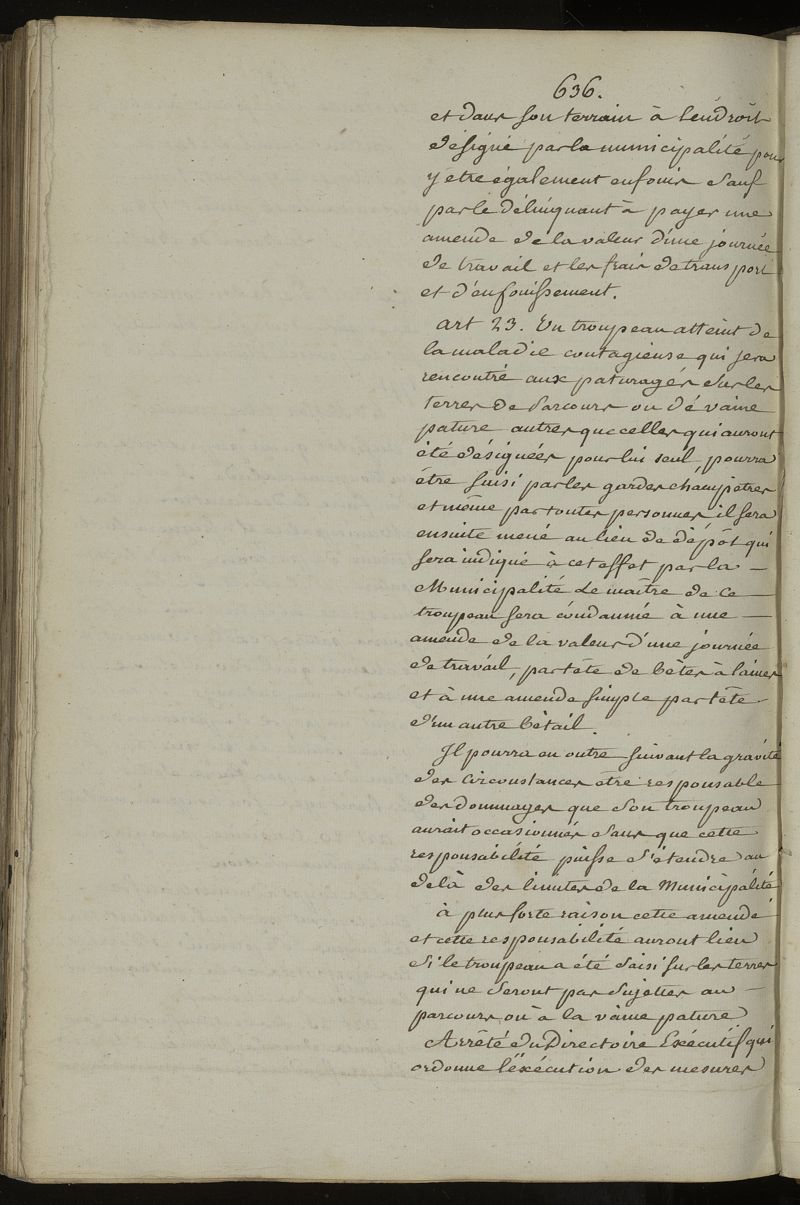 636.
et dans son terrain à l'endroit
désigné par la municipalité pour
y etre également enfouis sauf
par le délinquant à payer une
amende de la valeur d'une journée
de travail et les frais de transport
et d'enfouissement.
art 23. Un troupeau atteint de
la maladie contagieuse qui sera
rencontré aux paturages sur les
terres de parcours ou dé vaine
pature autres que celles qui auront
été désignées pour lui seul, pourra
être saisi par les gardes champêtres
et même par toutes personnes il sera
ensuite mené au lieu de dépôt qui
sera indiqué à cet effet par la —
Municipalité Le maître de ce —
troupeau sera condamné à une —
amende de la valeur d'une journée
de travail, par tête de bêtes à laines
et à une amende simple par tête
d'un autre bêtail.
Il pourra en outre suivant la gravité
des circonstances être responsable
des dommages que son troupeau
aurait occasionnés sans que cette
responsabilité puisse s'étendre au
delà des limites de la Municipalité
à plus forte raison cette amende
et cette responsabilité auront lieu
si le troupeau a été saisi sur les terres
qui ne seront pas sujettes au —
parcours ou à la vaine pature
Arrêté du Directoire Exécutif qui
ordonne l'éxécution des mesures